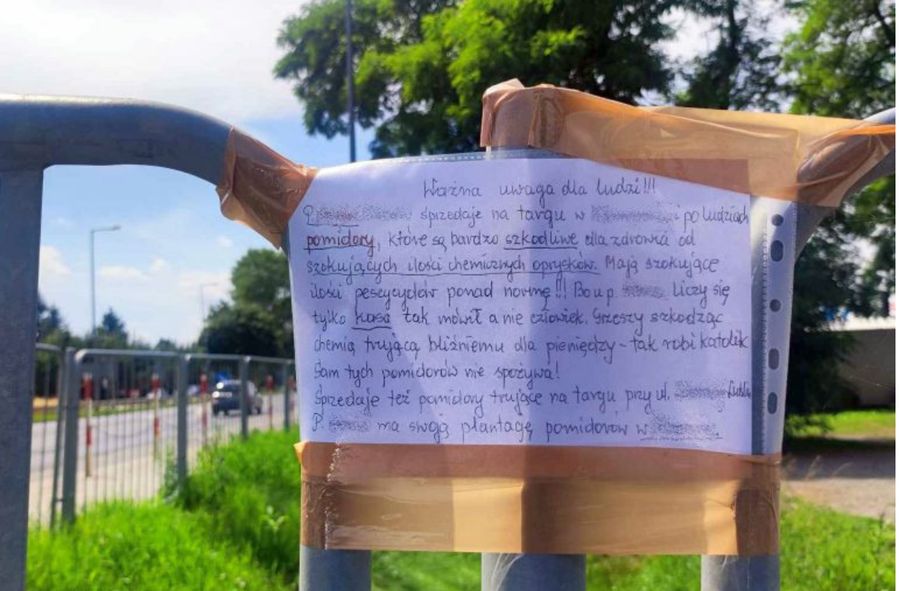 Ważna uwaga dla ludzi!!!
P. sprzedaje na targu w i po ludziach
pomidory, które są bardzo szkodliwe dla zdrowia od
szokujących ilości chemicznych oprysków. Mają szokujące
ilości pescycydów ponad normę!!! Bo u p. Liczy się
tylko kasa tak mówił a nie człowiek. Grzeszy szkodząc
chemią trującą bliźniemu dla pieniędzy - tak robi katolik
Sam tych pomidorów nie spożywa!
Sprzedaje też pomidory trujące na targu przy ul.
P. ma swoją plantację pomidorów w